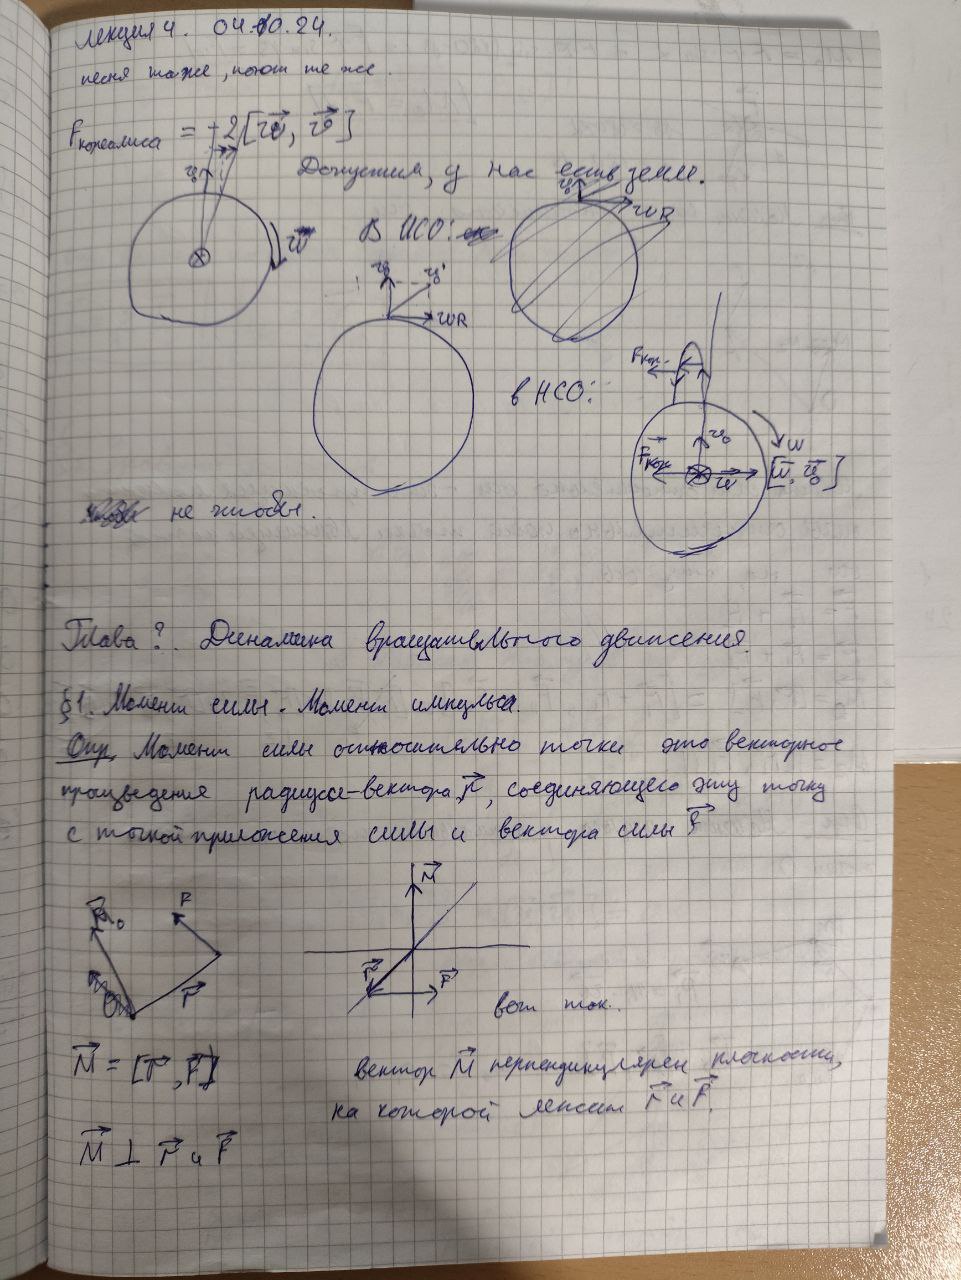 Лекция 4. 04.10.24.
песня та же, поют те же.
F кореалиса = -2[w⃗, v⃗]
v₀
Допустим, у нас есть земля.
v₀
wR
w⃗
В ИСО:
v₀ v₀'
wR
в НСО:
Fкор.
v₀
w
F⃗кор.
w⃗
[w⃗, v⃗₀]
не жлобы.
Глава ?. Динамика вращательного движения.
§1. Момент силы. Момент импульса.
Опр. Момент силы относительно точки это векторное
произведения радиусс-вектора r⃗, соединяющего эту точку
с точкой приложения силы и вектора силы F⃗
M⃗
F
r⃗
r⃗ F⃗
O
вот так.
M⃗ = [r⃗, F⃗]
вектор M⃗ перпендикулярен плоскости,
на которой лежит r⃗ и F⃗.
M⃗ ⊥ r⃗ и F⃗